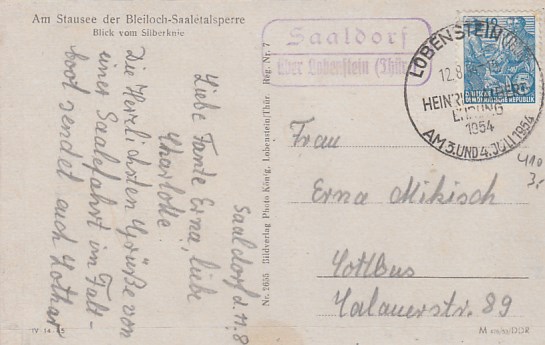 Am Stausee der Bleiloch-Saaletalsperre
Blick vom Silberknie
Saaldorf d. 11.8
Liebe Tante Erna, liebe
Charlotte
Die Herzlichsten Grüße von
einer Saalefahrt im Falt-
boot sendet auch Lothar
Nr. 2655 Bildverlag Photo König, Lobenstein/Thür Reg. Nr. 7
IV 14 45
Saaldorf
über Lobenstein (Thür
LOBENSTEIN (THÜR)
12.8
HEINRICH ALBERT
EHRUNG
1954
AM 3. UND 4. JULI 1954
DEUTSCHE
DEMOKRATISCHE REPUBLIK
410
3,-
Frau
Erna Mikisch
Cottbus
Calauerstr. 89
DDR